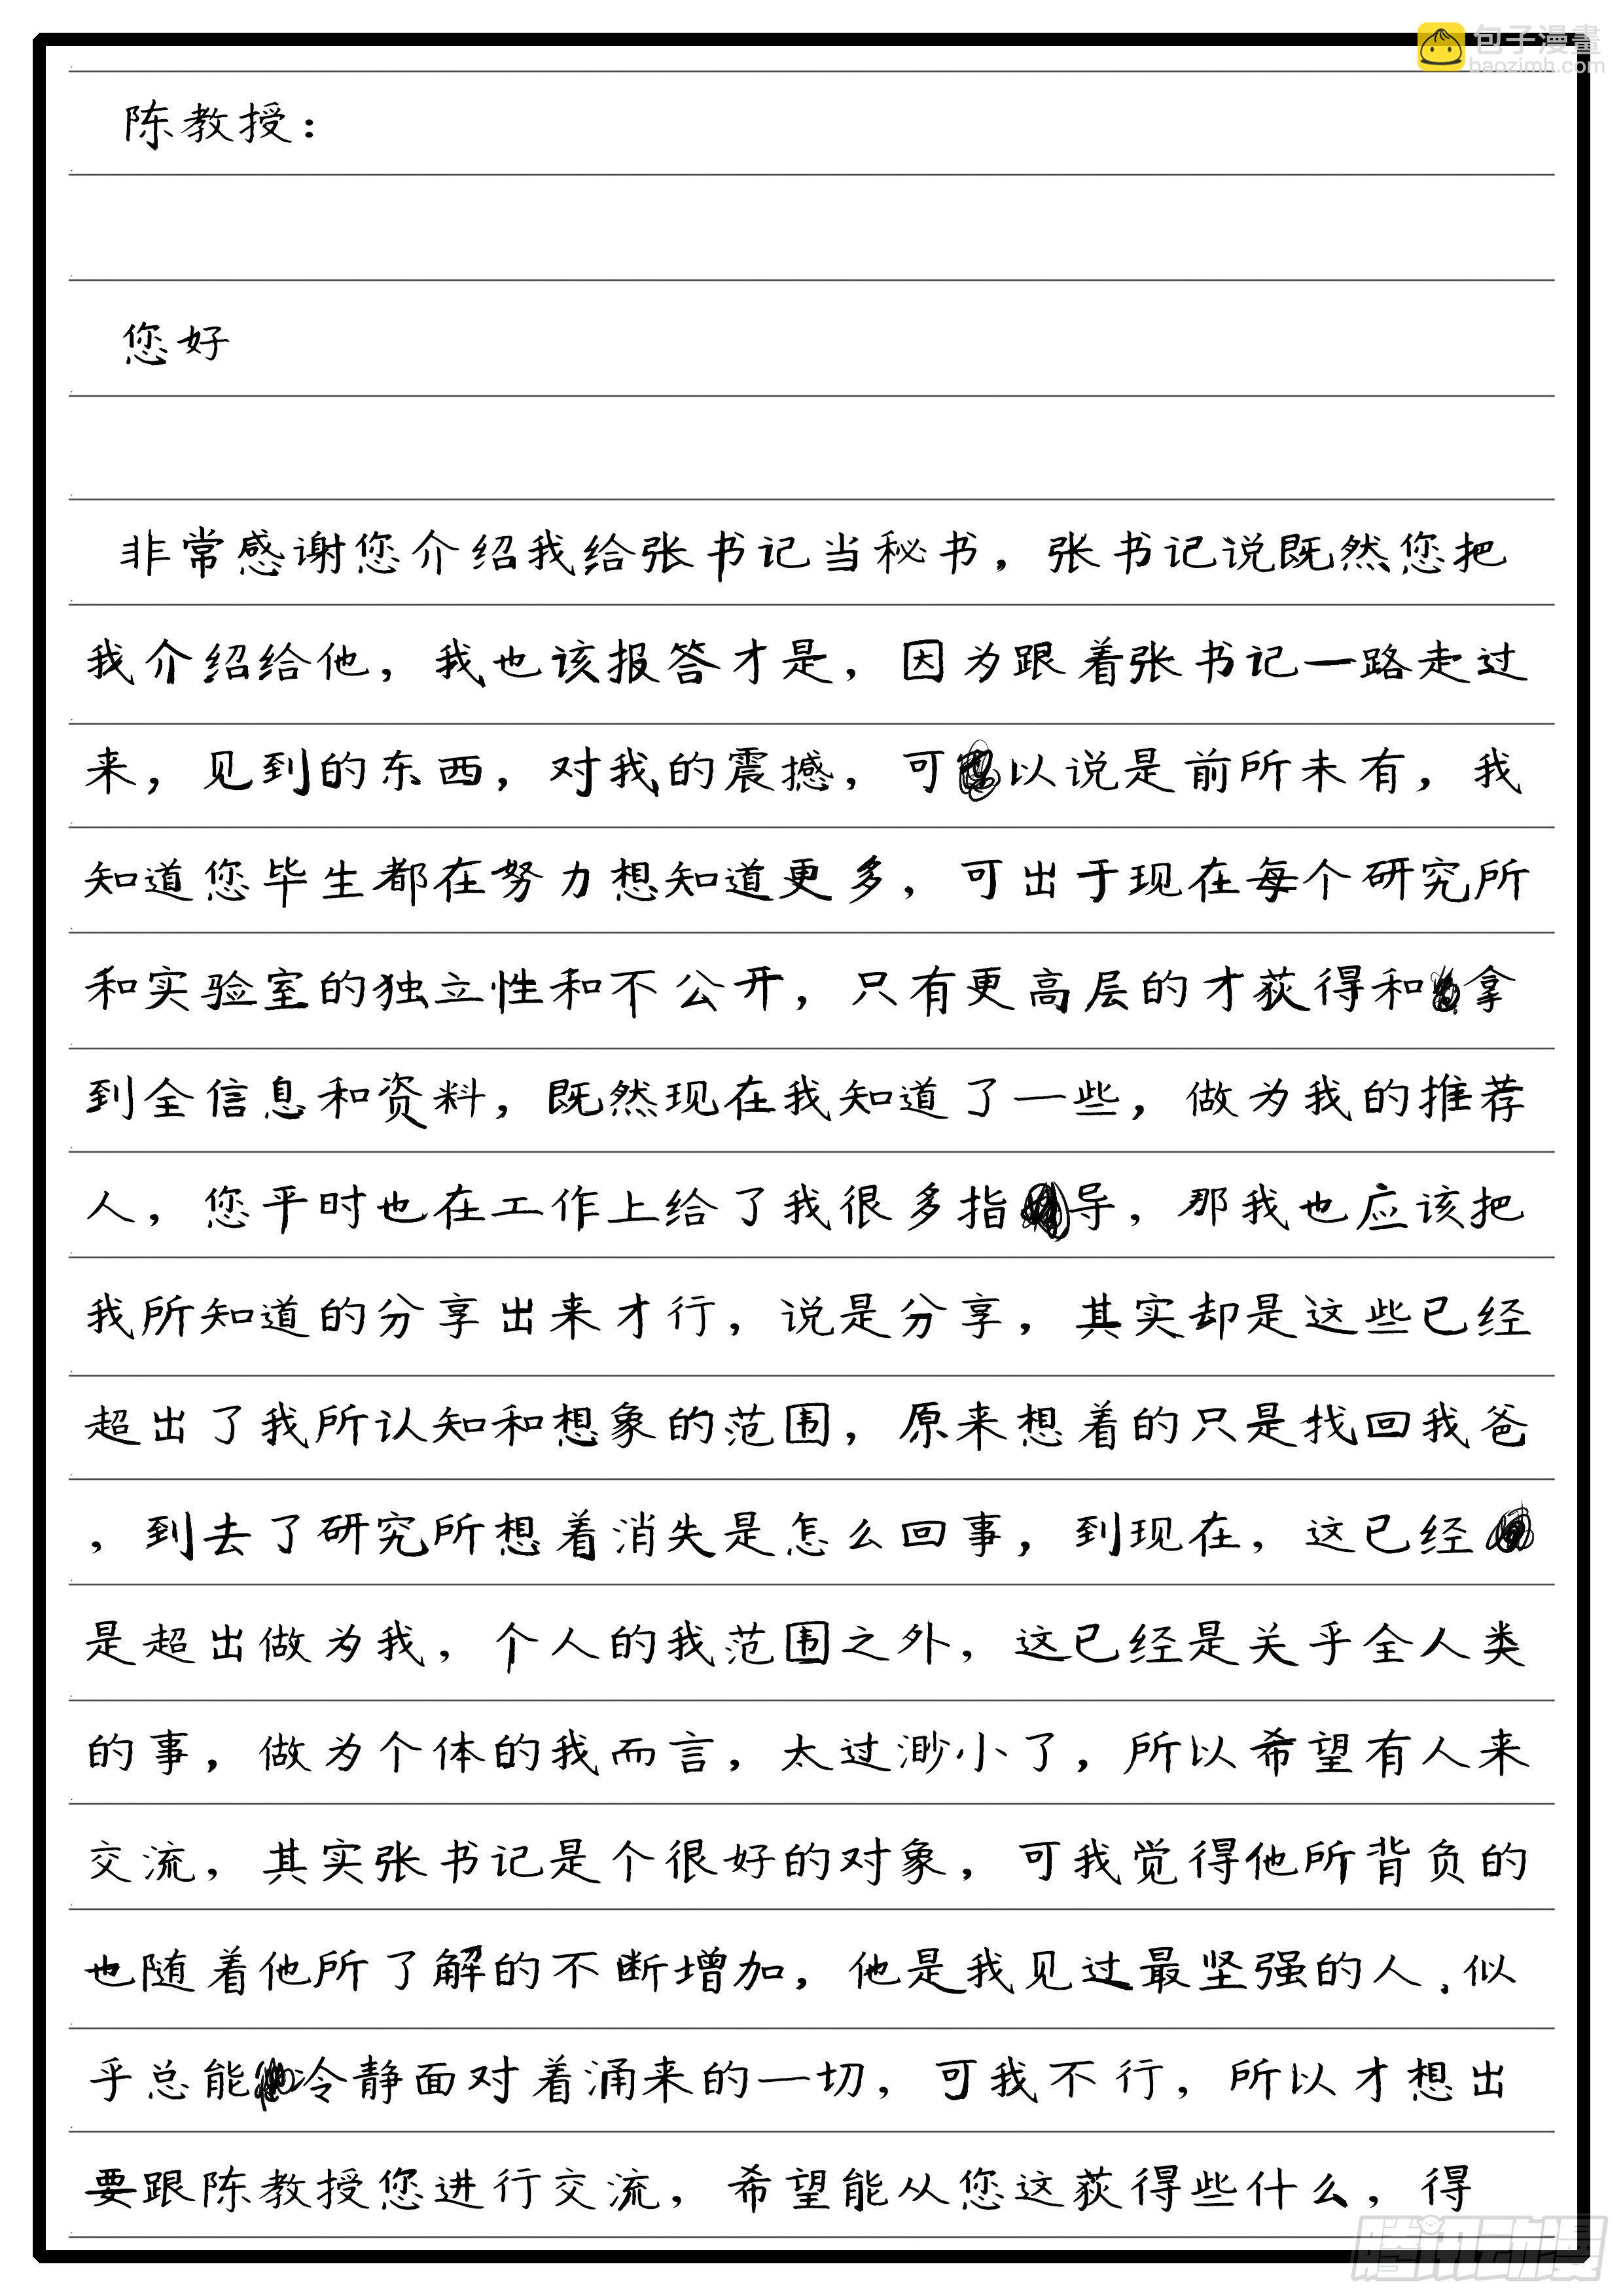 包子漫畫
baozimh.com
陈教授：
您好
非常感谢您介绍我给张书记当秘书，张书记说既然您把
我介绍给他，我也该报答才是，因为跟着张书记一路走过
来，见到的东西，对我的震撼，可以说是前所未有，我
知道您毕生都在努力想知道更多，可出于现在每个研究所
和实验室的独立性和不公开，只有更高层的才获得和拿
到全信息和资料，既然现在我知道了一些，做为我的推荐
人，您平时也在工作上给了我很多指导，那我也应该把
我所知道的分享出来才行，说是分享，其实却是这些已经
超出了我所认知和想象的范围，原来想着的只是找回我爸
，到去了研究所想着消失是怎么回事，到现在，这已经
是超出做为我，个人的我范围之外，这已经是关乎全人类
的事，做为个体的我而言，太过渺小了，所以希望有人来
交流，其实张书记是个很好的对象，可我觉得他所背负的
也随着他所了解的不断增加，他是我见过最坚强的人，似
乎总能冷静面对着涌来的一切，可我不行，所以才想出
要跟陈教授您进行交流，希望能从您这获得些什么，得
腾讯动漫